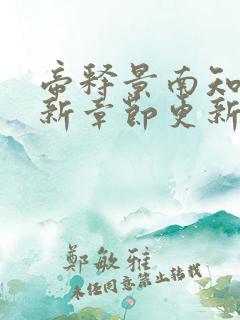 帝释景南知
新章节更新
鄭敏雅
未经同意禁止转载